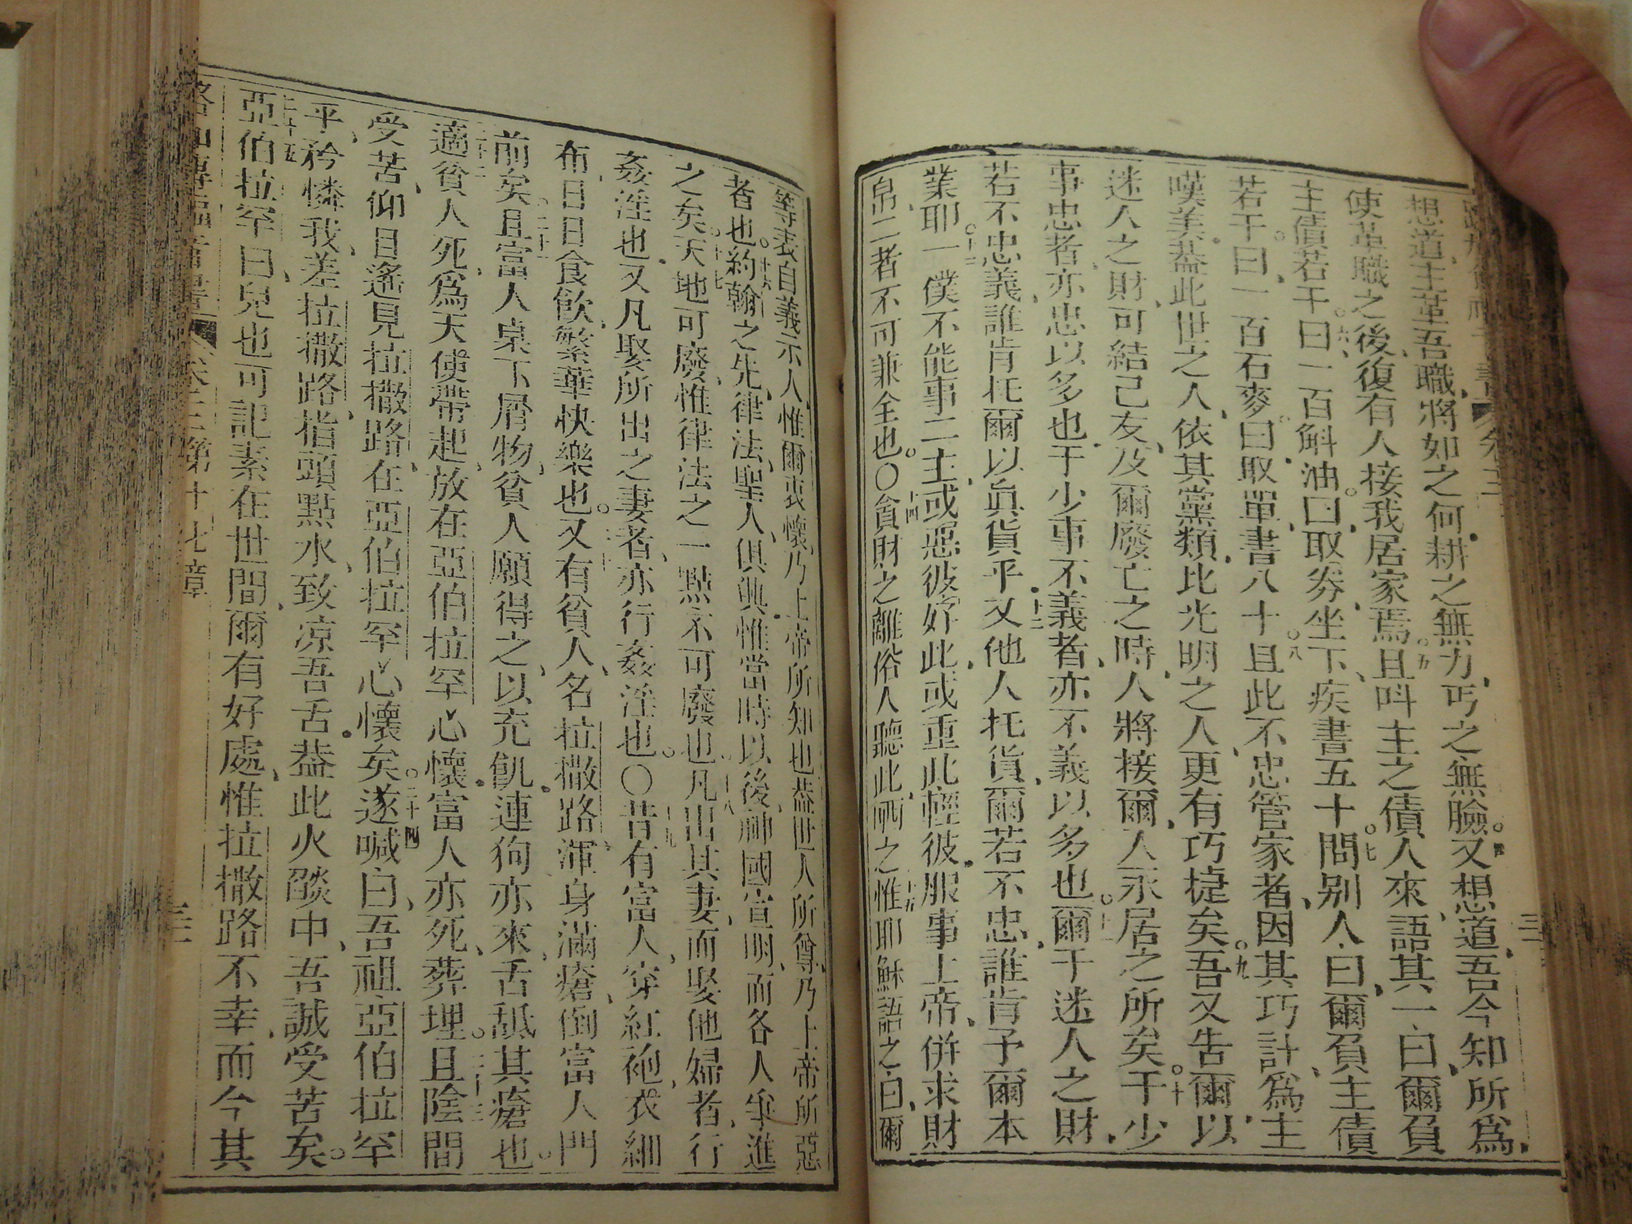 想道主革吾職將如之何耕之無力丐之無臉又想道吾今知所爲
使革職之後復有人接我居家焉五且呌主之債人來語其一曰爾負
主債若干六曰一百斛油曰取券坐下疾書五十七問别人曰爾負主債
若干曰一百石麥曰取單書八十八且此不忠管家者因其巧計爲主
嘆美葢此世之人依其黨類比光明之人更有巧捷矣九吾又告爾以
迷人之財可結己友及爾廢亡之時人將接爾人永居之所矣十于少
事忠者亦忠以多也于少事不義者亦不義以多也十一爾于迷人之財
若不忠義誰肯托爾以眞貨乎十二又他人托貨爾若不忠誰肯予爾本
業耶十三一僕不能事二主或惡彼好此或重此輕彼服事上帝併求財
帛二者不可兼全也〇十四貪財之離俗人聽此哂之十五惟耶穌語之曰爾
等表自義示人惟爾衷懷乃上帝所知也葢世人所尊乃上帝所惡
者也十六約翰之先律法聖人俱興惟當時以後神國宣明而各人爭進
之矣十七天地可廢惟律法之一點不可廢也十八凡出其妻而娶他婦者行
姦淫也又凡娶所出之妻者亦行姦淫也〇十九昔有富人穿紅袍衣細
布日日食飲繁華快樂也二十又有貧人名拉撒路渾身滿瘡倒富人門
前矣二十一且富人桌下屑物貧人願得之以充飢連狗亦來舌舐其瘡也
二十二適貧人死爲天使帶起放在亞伯拉罕心懷富人亦死葬埋二十三且陰間
受苦仰目遙見拉撒路在亞伯拉罕心懷矣二十四遂喊曰吾祖亞伯拉罕
乎矜憐我差拉撒路指頭點水致凉吾舌葢此火燄中吾誠受苦矣
二十五亞伯拉罕曰兒也可記素在世間爾有好處惟拉撒路不幸而今其
路加傳福音書 卷三 第十七章 三二